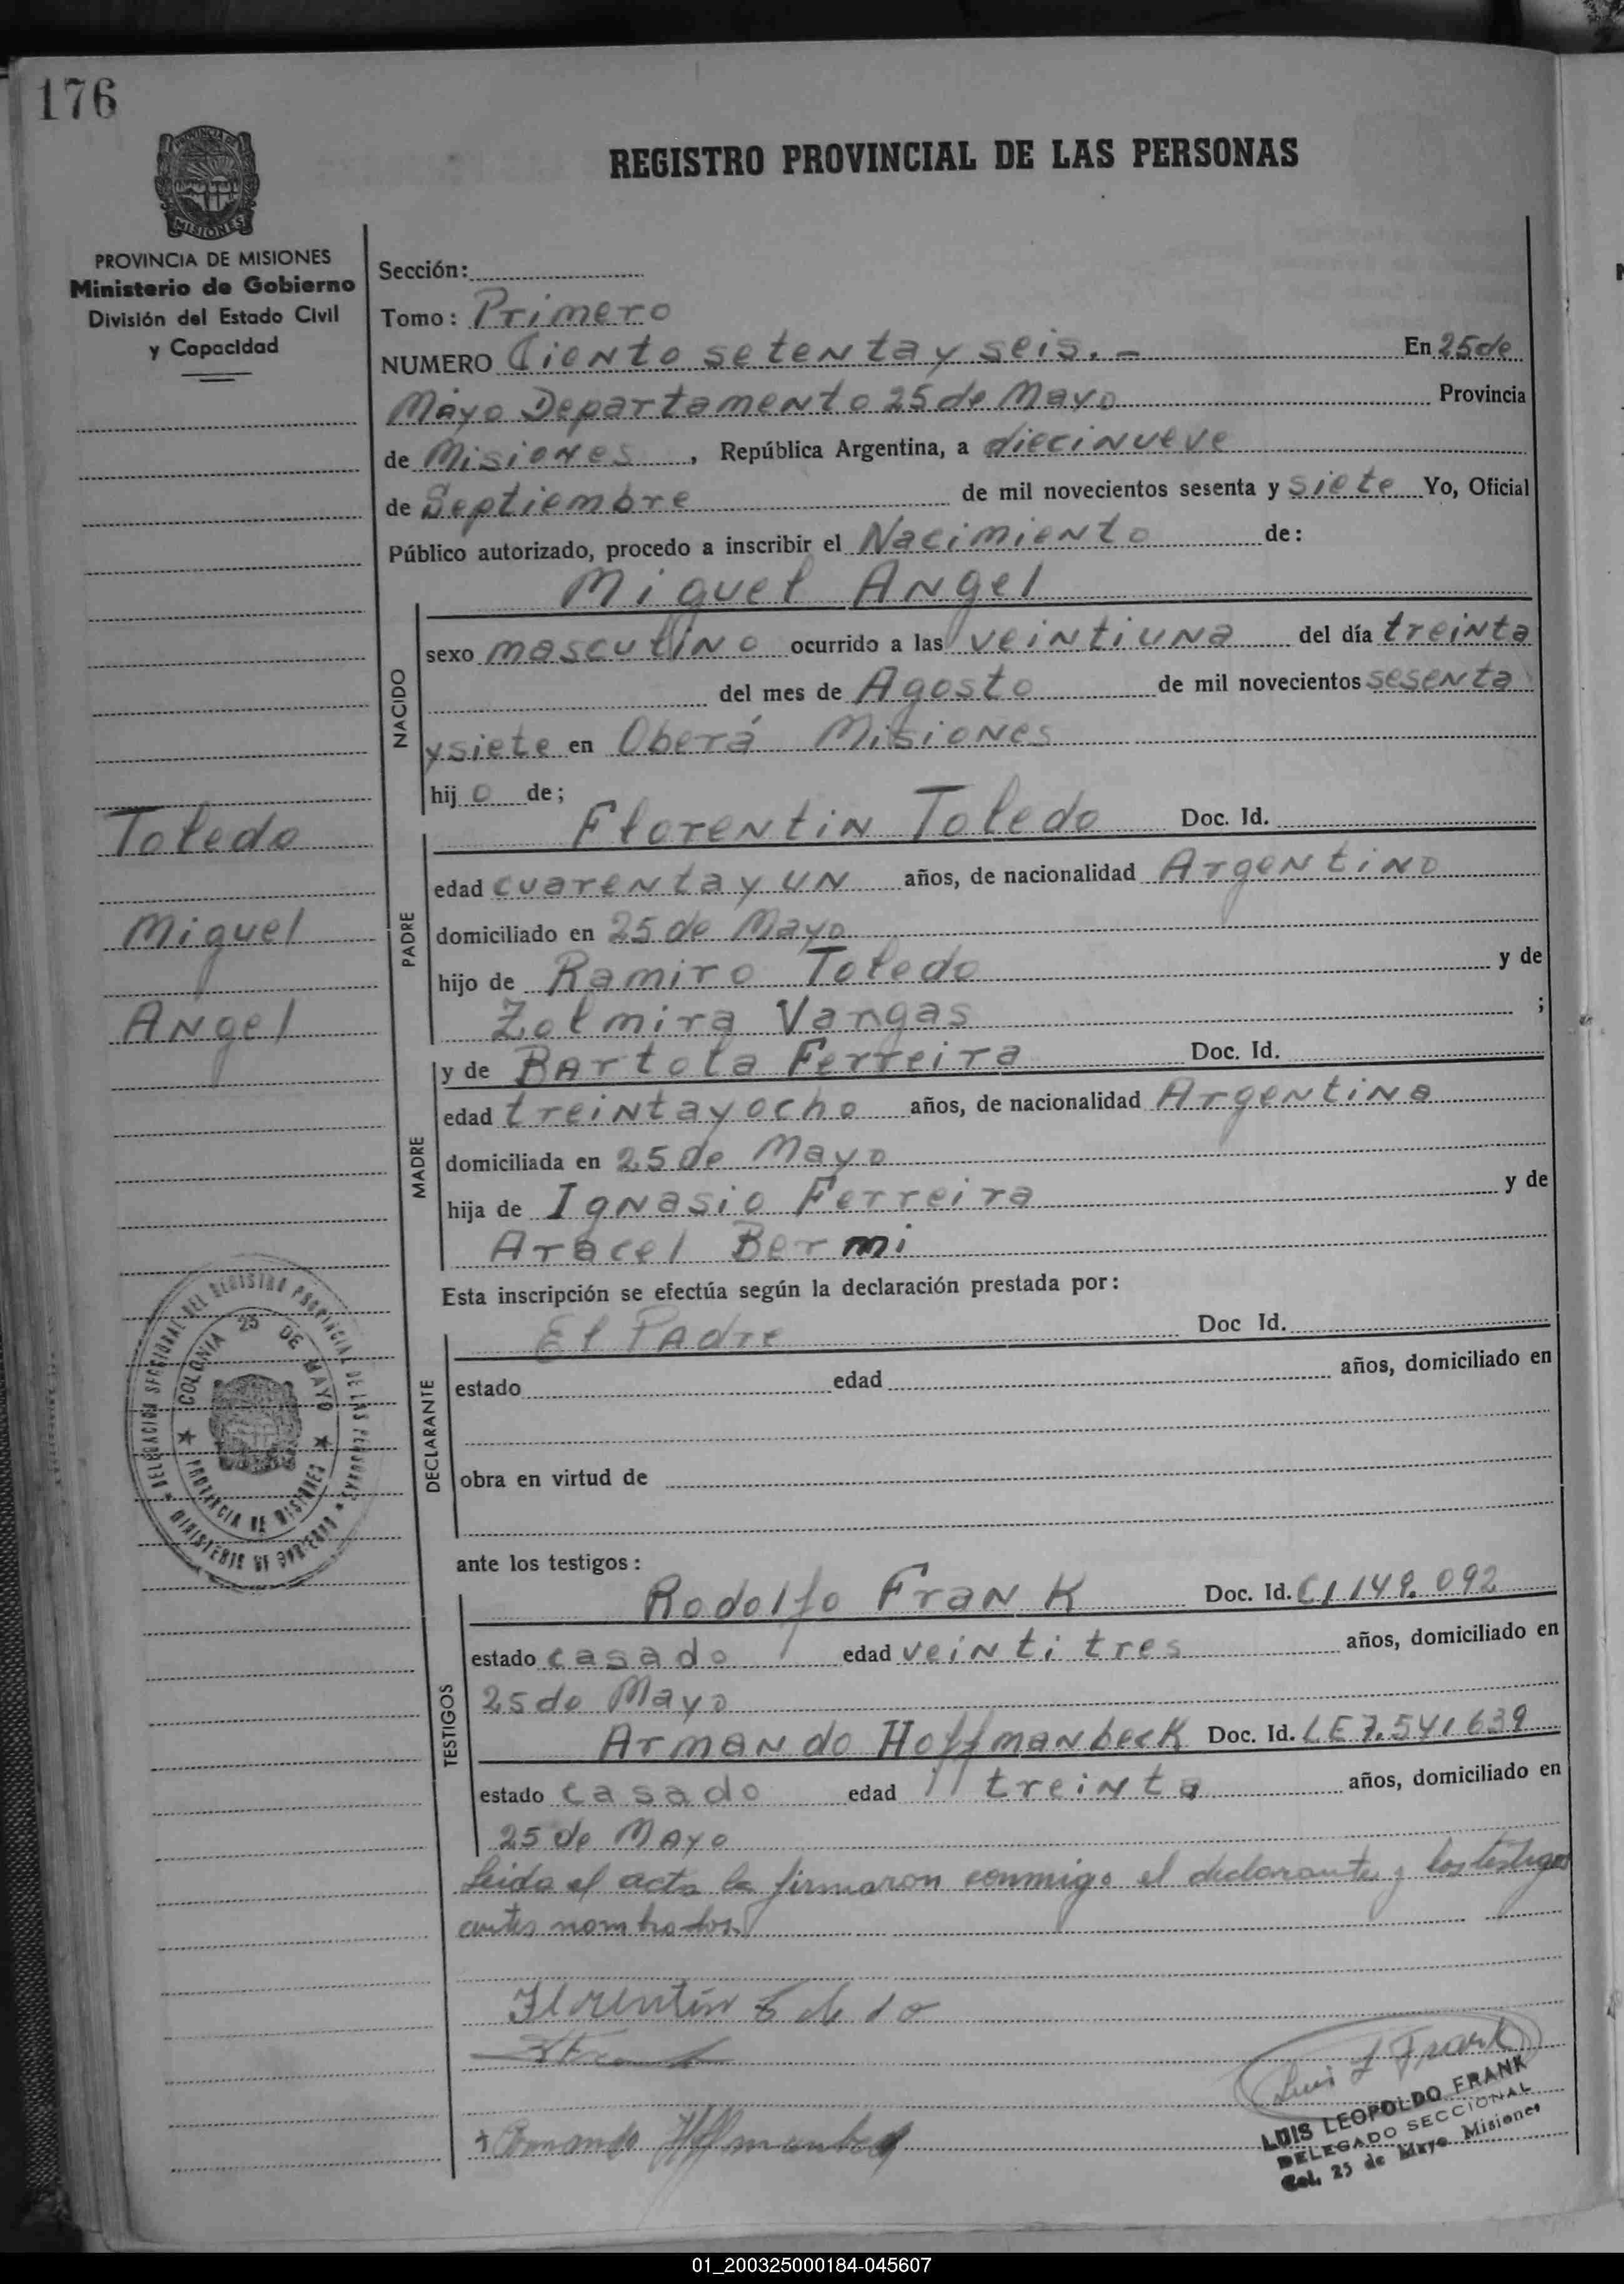 176
REGISTRO PROVINCIAL DE LAS PERSONAS
PROVINCIA DE
MISIONES
PROVINCIA DE MISIONES
Ministerio de Gobierno
División del Estado Civil
y Capacidad
Sección:
Tomo: Primero
NUMERO Ciento setenta y seis. - En 25 de
Mayo Departamento 25 de Mayo Provincia
de Misiones, República Argentina, a diecinueve
de Septiembre de mil novecientos sesenta y siete Yo, Oficial
Público autorizado, procedo a inscribir el Nacimiento de:
Miguel Angel
NACIDO
sexo masculino ocurrido a las veintiuna del día treinta
del mes de Agosto de mil novecientos sesenta
y siete en Oberá Misiones
hijo de;
Toledo
Miguel
Angel
Florentin Toledo Doc. Id.
PADRE
edad cuarenta y un años, de nacionalidad Argentino
domiciliado en 25 de Mayo
hijo de Ramiro Toledo y de
Zolmira Vargas ;
y de Bartola Ferreira Doc. Id.
MADRE
edad treinta y ocho años, de nacionalidad Argentina
domiciliada en 25 de Mayo
hija de Ignasio Ferreira y de
Aracel Bermi
Esta inscripción se efectúa según la declaración prestada por:
El Padre Doc Id.
DECLARANTE
estado edad años, domiciliado en
obra en virtud de
DELEGACION SECCIONAL DEL REGISTRO PROVINCIAL DE LAS PERSONAS
MINISTERIO DE GOBIERNO
COLONIA 25 DE MAYO
PROVINCIA DE MISIONES
ante los testigos:
Rodolfo Frank Doc. Id. CI 149.092
TESTIGOS
estado casado edad veinti tres años, domiciliado en
25 de Mayo
Armando Hoffmanbeck Doc. Id. LE 7.541639
estado casado edad treinta años, domiciliado en
25 de Mayo
Leida el acta la firmaron conmigo el declarante y los testigos
antes nombrados
Florentin Toledo
Luis L Frank
LUIS LEOPOLDO FRANK
DELEGADO SECCIONAL
Col. 25 de Mayo Misiones
Armando Hoffmanbeck
01_200325000184-045607